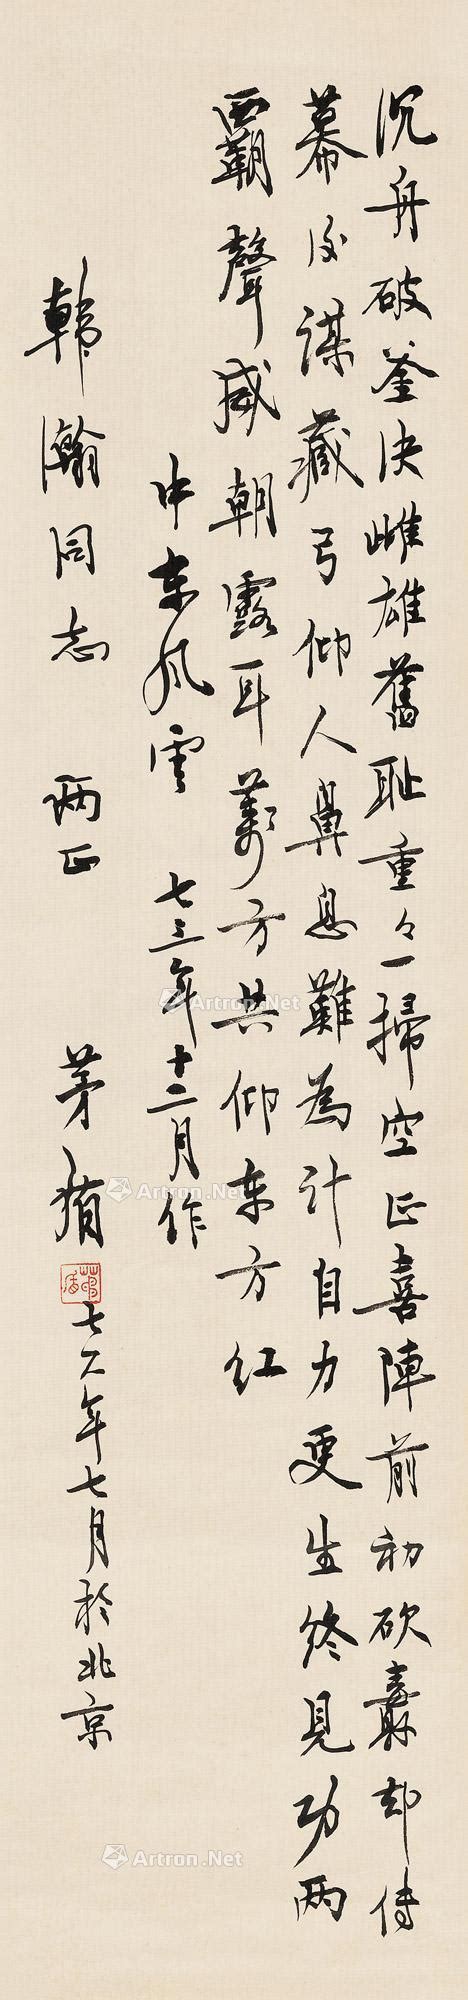 沉舟破釜决雌雄舊耻重々一掃空正喜陣前初砍纛却传
幕后謀藏弓仰人鼻息難為计自力更生终見功两
覇聲威朝露耳萬方共仰东方红
中东风雲 七三年十二月作
韩瀚同志 两正 茅盾 七六年七月於北京
茅盾
Artron.Net
Artron.Net
Artron.Net